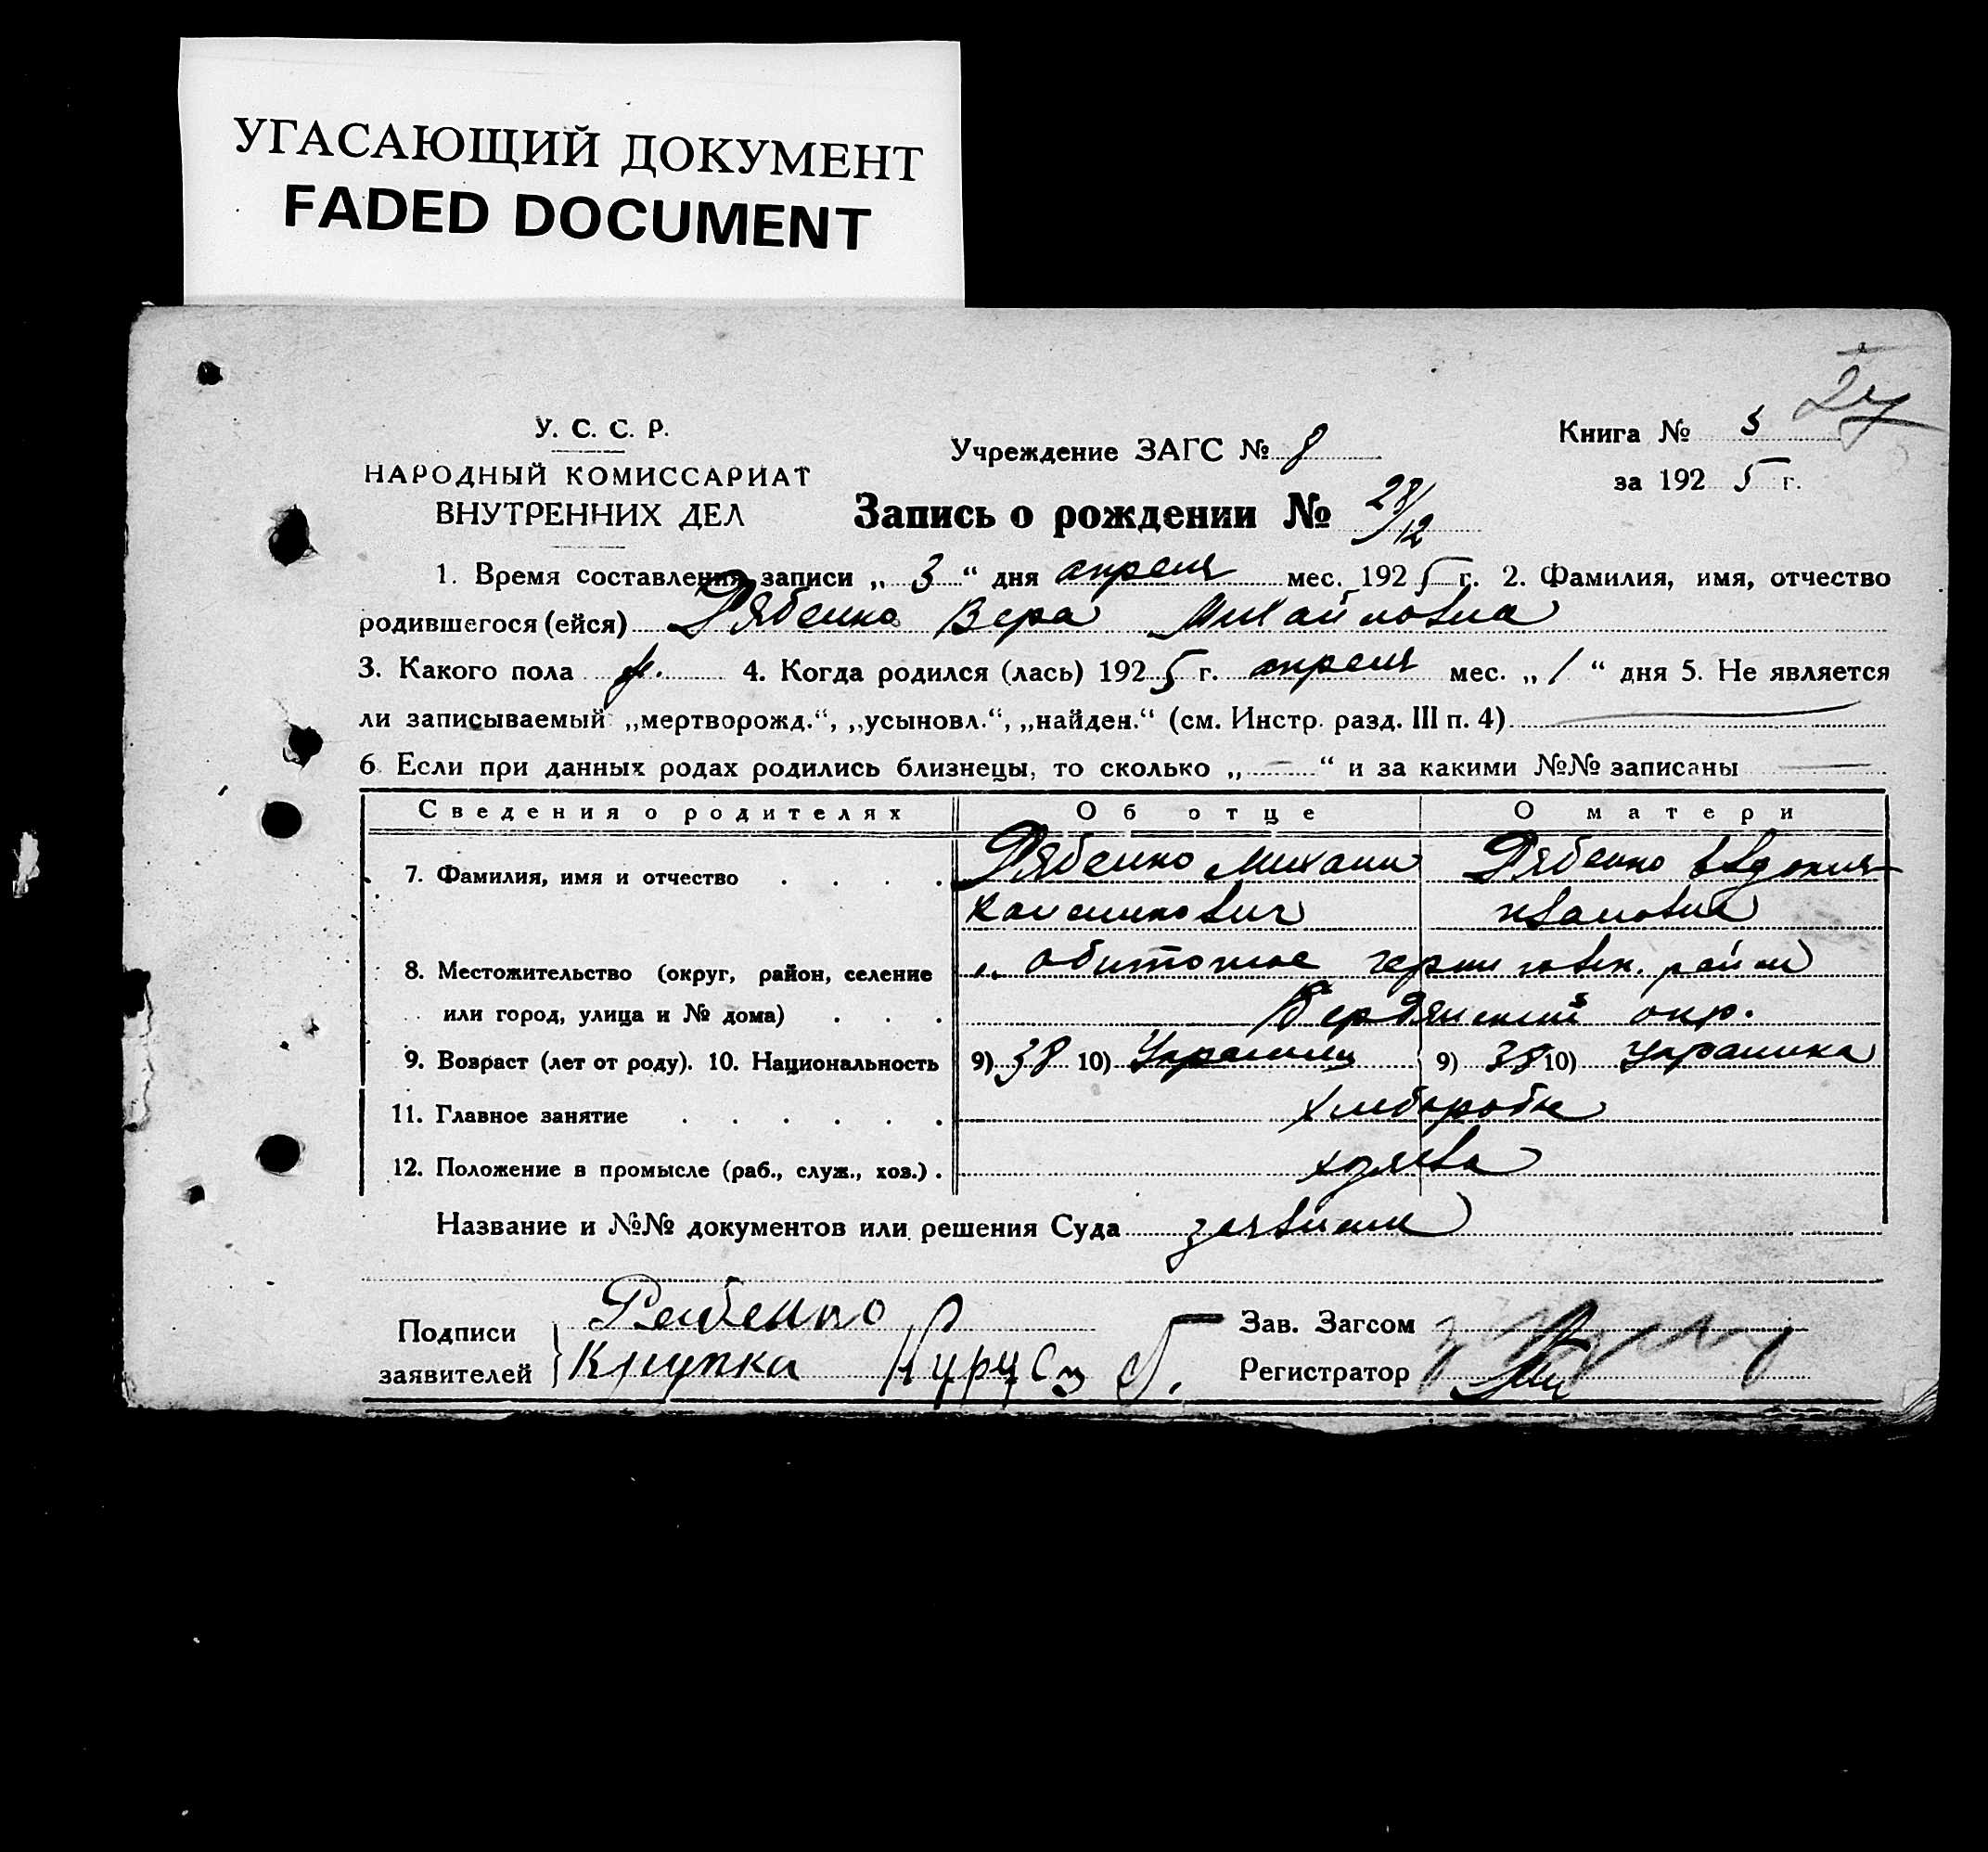 УГАСАЮЩИЙ ДОКУМЕНТ
FADED DOCUMENT
27
У. С. С. Р.
НАРОДНЫЙ КОМИССАРИАТ
ВНУТРЕННИХ ДЕЛ
Учреждение ЗАГС № 8
Книга № 5
за 1925 г.
Запись о рождении № 28/12
1. Время составления записи „3“ дня апреля мес. 1925 г. 2. Фамилия, имя, отчество
родившегося (ейся) Рябенко Вера Михайловна
3. Какого пола ж. 4. Когда родился (лась) 1925 г. апреля мес. „1“ дня 5. Не является
ли записываемый „мертворожд.“, „усыновл.“, „найден.“ (см. Инстр. разд. III п. 4)
6. Если при данных родах родились близнецы, то сколько „—“ и за какими №№ записаны —
Сведения о родителях Об отце О матери
7. Фамилия, имя и отчество Рябенко Михаил Рябенко Евдокия
Ивановна
8. Местожительство (округ, район, селение Обиточное Черниговск. район
или город, улица и № дома) Бердянский окр.
9. Возраст (лет от роду). 10. Национальность 9) 38 10) Украинец 9) 38 10) Украинка
11. Главное занятие хлеборобы
12. Положение в промысле (раб., служ., хоз.) хозяева
Название и №№ документов или решения Суда заявление
Подписи заявителей Рябенко
Крупка
Зав. Загсом
Регистратор